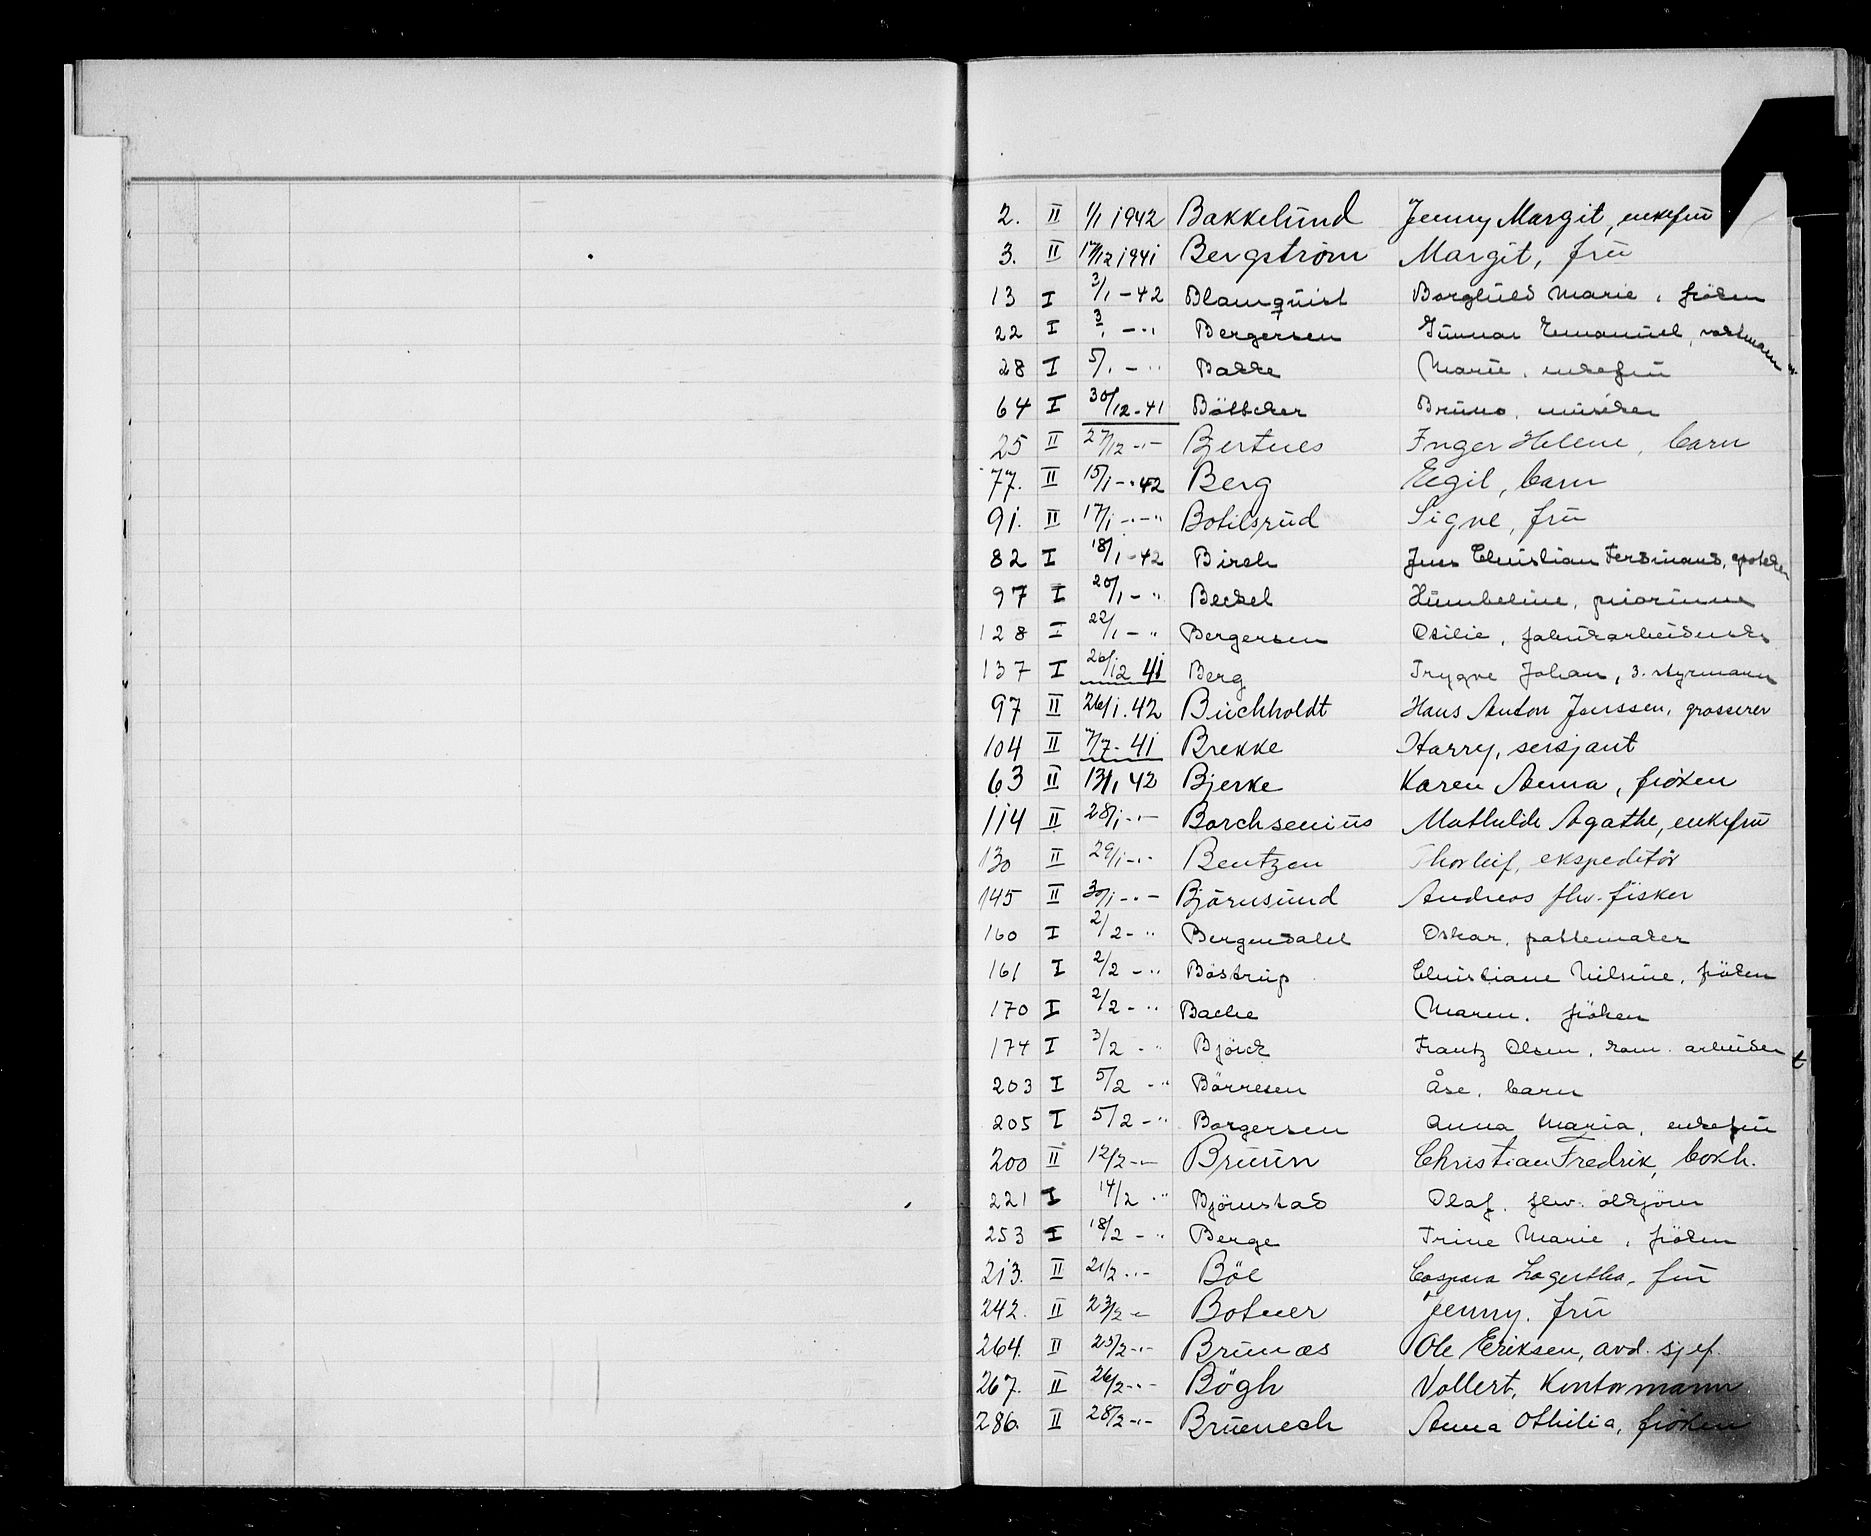 2. II 1/1 1942 Bakkelund Jenny Margit, enkefru
3. II 17/12 1941 Bergstrøm Margit, fru
13 I 3/1 - 42 Blomquist Borghild Marie, fröken
22 I 3/1 - " Bergersen Gunnar Emanuel, vaktmann
28 I 5/1 - " Bakke Marie, enkefru
64 I 30/12 - 41 Böttcher Bruno, musiker
25 II 27/12 - " - Bjertnes Inger Helene, barn
77. II 15/1 - 42 Berg Egil, barn
91. II 17/1 - " - " Botilsrud Signe, fru
82 I 18/1 - 42 Birch Jens Christian Ferdinand, apoteker
97 I 20/1 - " Beckel Humbeline, priorinne
128 I 22/1 - " Bergersen Otilie, fabrikarbeiderske
137 I 26/12 41 Berg Trygve Johan, 3. styrmann
97 II 26/1. 42 Buchholdt Hans Anton Jenssen, grosserer
104 II 7/7 - 41 Brekke Harry, sersjant
63 II 13/1 42 Bjerke Karen Anna, fröken
114 II 28/1 - " - Borchsenius Mathilde Agathe, enkefru
130 II 29/1 - " - Bentzen Thorleif, ekspeditör
145 II 30/1 - " - Björnsund Andreas flw. fisker
160 I 2/2 - " Bergendahl Oskar, pottemaker
161 I 2/2 - " Bostrup Christiane Nilsine, fröken
170 I 2/2 - " Bache Maren, fröken
174 I 3/2 - " Björck Frantz Olsen, kom. arbeider
203 I 5/2 - " Börresen Åse, barn
205 I 5/2 - " Borgersen Anna Maria, enkefru
200 II 12/2 - " - Bruun Christian Fredrik, bokh.
221 I 14/2 - " Björnstad Olaf, flw. ölkjörer
253 I 18/2 - " Berge Trine Marie, fröken
213. II 21/2 - " - Böe Caspara Lagertha, fru
242. II 23/2 - Botner Jenny, fru
264. II 25/2 - " - Brunæs Ole Eriksen, avd. sjef.
267. II 26/2 - " - Bögh Vollert, Kontormann
286. II 28/2 - " - Bruenech Anna Othilia, fröken